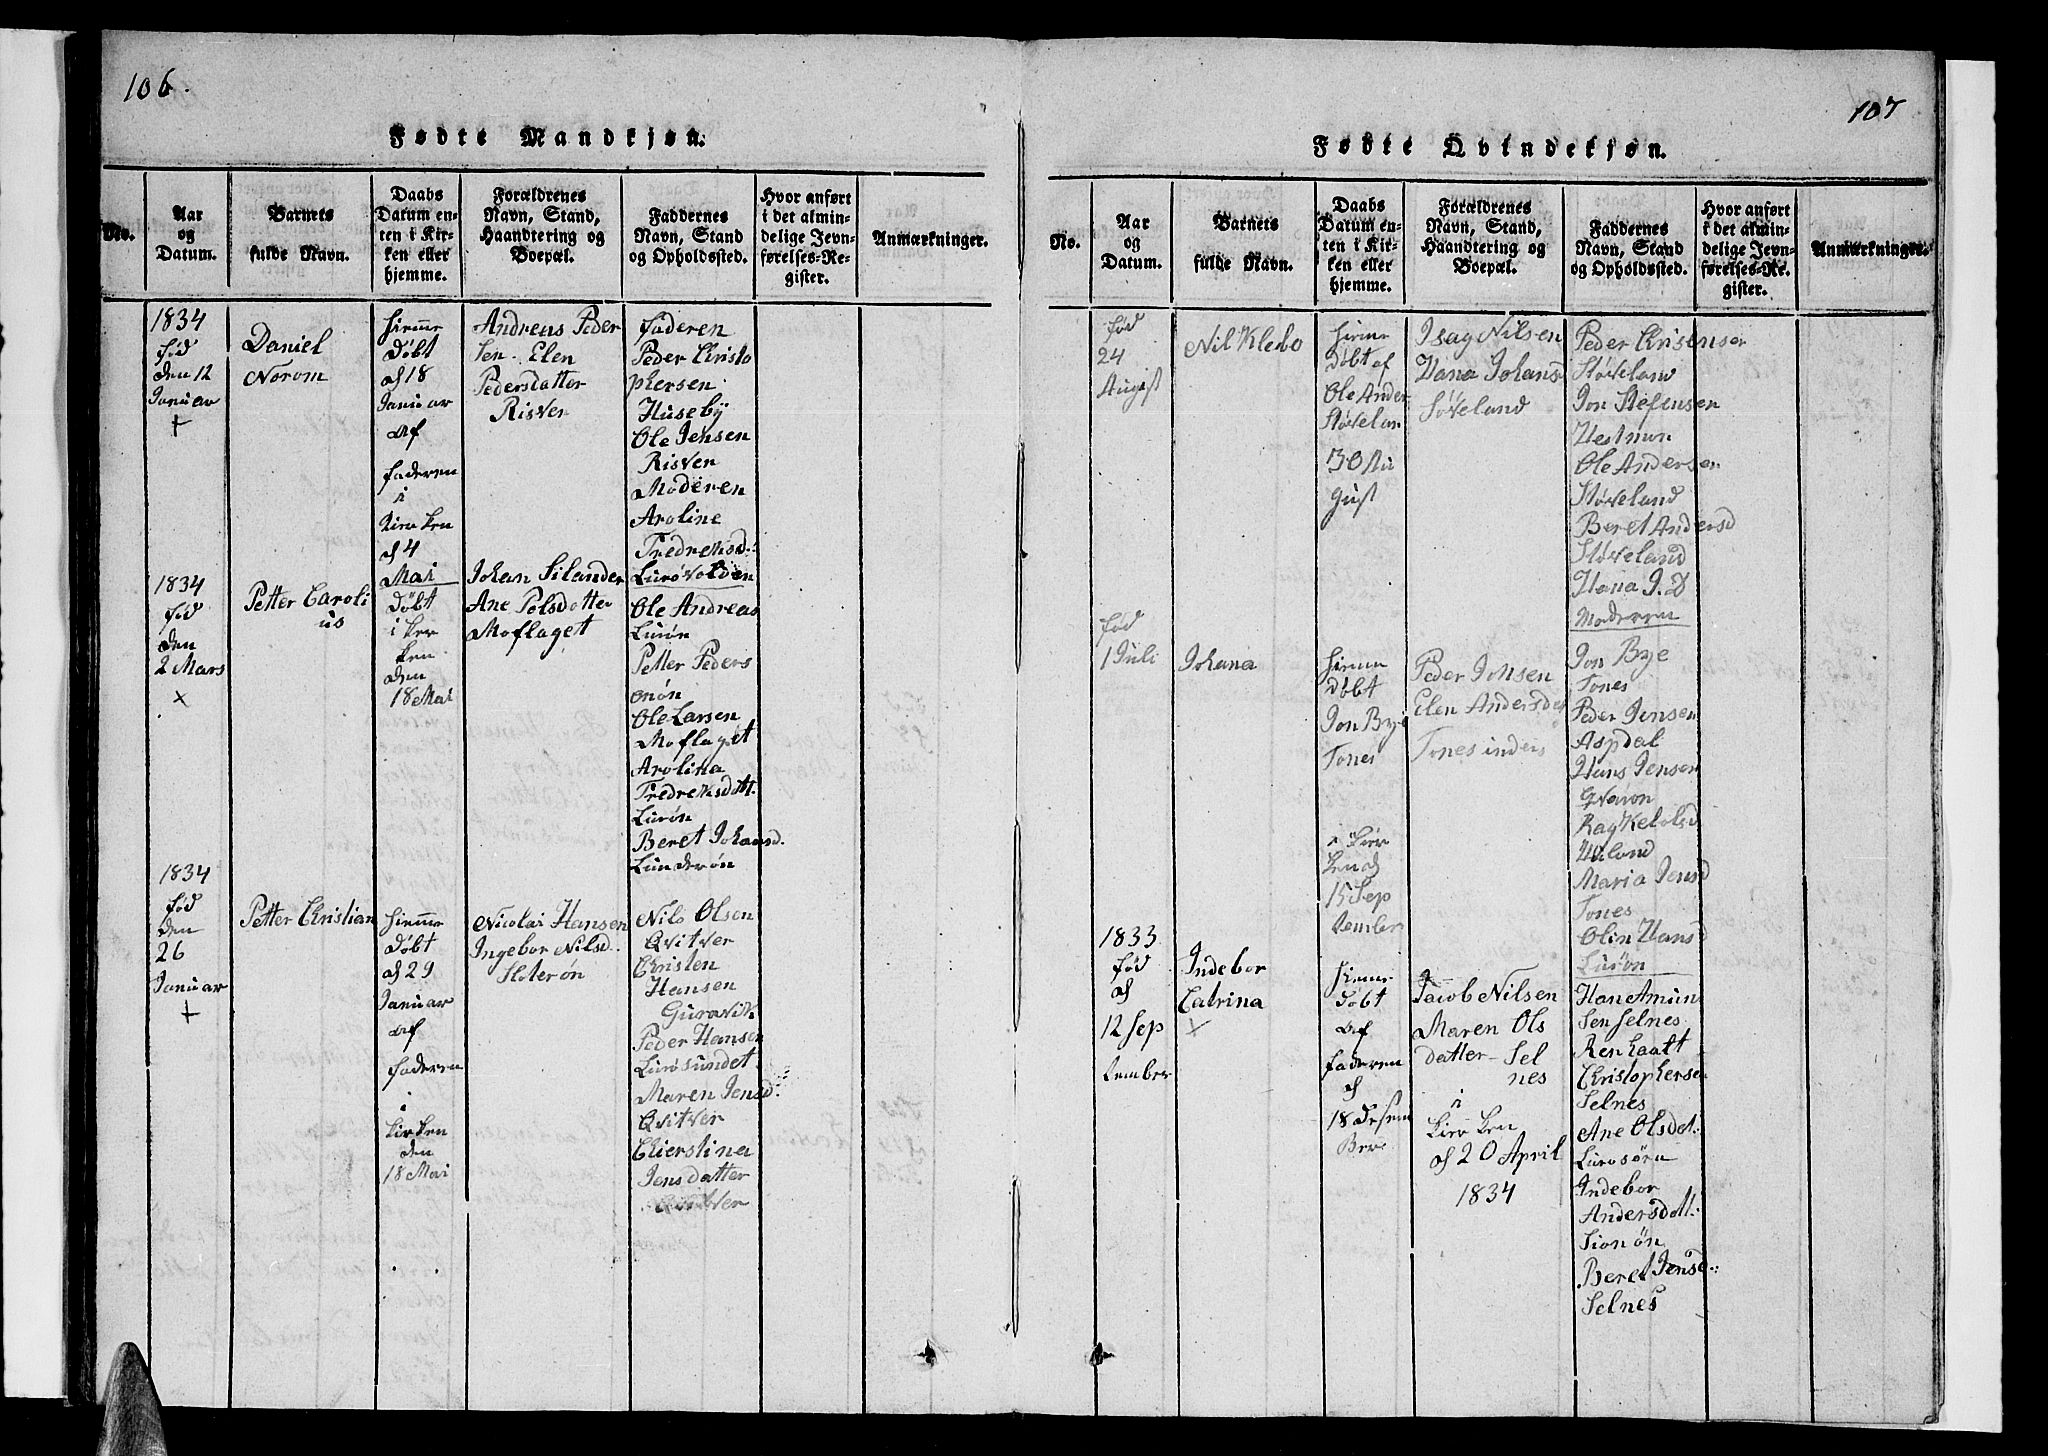 106.
Fødte Mandkjøn.
No.
Aar
og
Datum.
Barnets
fulde Navn.
Daabs
Datum en-
ten i Kir-
ken eller
hjemme.
Forældrenes
Navn, Stand,
Haandtering og
Boepæl.
Faddernes
Navn, Stand
og Opholdssted.
Hvor anført
i det almin-
delige Jevn-
førelses-Re-
gister.
Anmærkninger.
1834
fød
den 12
Januar
+
Daniel
Norom
hieme
Døbt
d 18
Januar
af
faderen
i
kirken
d 4
Mai
Andreas Peder
Sen. Elen
Pedersdatter
Risver
Faderen
Peder Christo
phersen
Huseby
Ole Jensen
Risver
Moderen
Aroline
Fredreksd.:
Lurøvolden
1834
fød
den
2 Mars
x
Petter Caroli
us
Døbt
i kir
ken
den
18 Mai
Johan Silander
Ane Polsdatter
Moflaget
Ole Andreas
Lurøn
Petter Peders
onøn
Ole Larsen
Moflaget
Arolina
Fredreksdatt.
Lurøn
Beret Johansd.
Lunderøn
1834
fød
den
26
Januar
+
Petter Christian
hieme
Døbt
d 29
Januar
af
faderen
i
kirken
den
18 Mai
Nicolai Hansen
Ingebor Nilsd.
Sloterøn
Nils Olsen
Qvitver
Christen
Hansen
Guravik
Peder Hansen
Lurøsundet
Maren Jensd.:
Qvitver
Chierstina
Jensdatter
Qvitver
107
Fødte Qvindekjøn.
No.
Aar
og
Datum.
Barnets
fulde Navn.
Daabs
Datum en-
ten i Kir-
ken eller
hjemme.
Forældrenes
Navn, Stand,
Haandtering og
Boepæl.
Faddernes
Navn, Stand
og Opholdssted.
Hvor anført
i det almin-
delige Jevn-
førelses-Re-
gister.
Anmærkninger.
fød
24
August
Nil Klebo
hieme
Døbt af
Ole Ander
Støvelan
30 Au
gust
Isag Nilsen
Hana Johans
Søveland
Peder Chrisenser
Støveland
Jon Stefensen
Hestmon
Ole Andersen
Støveland
Beret Andersd
Støveland
Hana J. D
Moderen
fød
1 Juli
Johana
hieme
Døbt
Jon Bye
Tones
i kier
ken d
15 Sep
tember
Peder Johsen
Elen Andersdat
Tones inders
Jon Bye
Tones
Peder Jensen
Aspdal
Hans Jensen
Qvarøn
Ragkel Olsd
Maria Jensd
Tones
Olin Hansd
Lurøn
1833
fød
d
12 Sep
tember
Indebor
Catrina
x
hieme
Døbt
af
faderen
d
18 Desem
Ber
Jacob Nilsen
Maren Ols
datter - Sel
nes
i
kier ken
d 20 April
1834
Hans Amun
Sen Selnes
Ren haalt
Christophersen
Selnes
Ane Olsdat.:
Lurosørn
Indebor
Andersdatt.:
Sionøn
Beret Jensd.:
Selnes